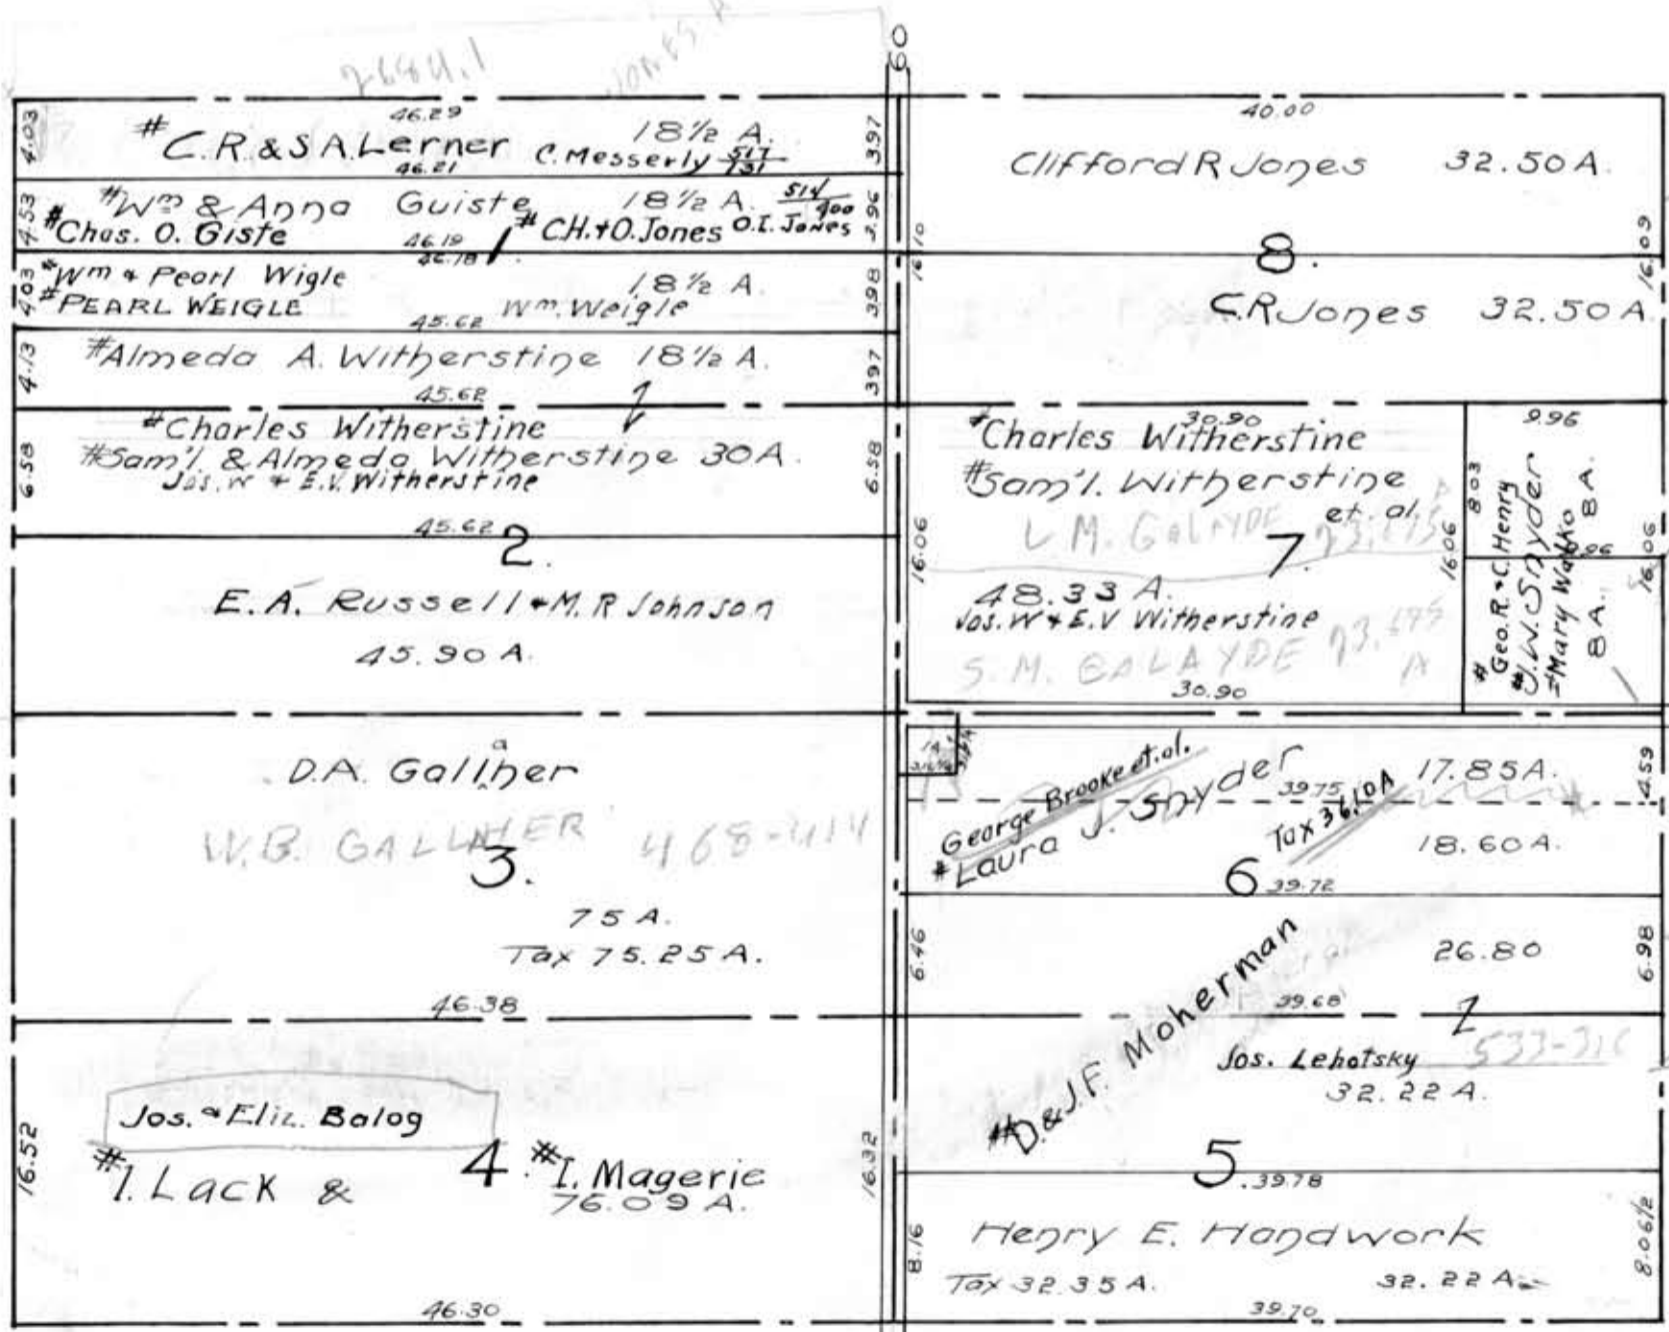 2684.1
JONES
60
46.29
4.03
#C.R.&S.A.Lerner 18½ A.
C.Messerly 517/131
3.97
46.21
4.53
#Wm & Anna Guiste 18½ A. 514/400
#Chas. O. Giste #C.H.+O.Jones O.I. Jones
3.96
46.19
46.18
4.03
#Wm & Pearl Wigle 18½ A.
#PEARL WEIGLE Wm. Weigle
3.98
45.62
4.13
#Almeda A. Witherstine 18½ A.
3.97
45.62
1
6.58
#Charles Witherstine
#Sam'l & Almeda Witherstine 30A.
Jos. W & E.V. Witherstine
6.58
45.62
2.
E.A. Russell & M.R Johnson
45.90 A.
D.A. Gallaher
W.B. GALLAHER 468-414
3.
75 A.
Tax 75.25 A.
46.38
16.52
Jos. & Eliz. Balog
#I. Lack & 4. #I. Magerie
76.09 A.
16.32
46.30
40.00
Clifford R Jones 32.50 A.
16.10
8.
16.09
C.R Jones 32.50 A.
30.90
#Charles Witherstine
#Sam'l. Witherstine
et. al.
L M. GALAYDE
16.06
7.
16.06
48.33 A.
Jos. W & E.V Witherstine
S. M. GALAYDE
A
30.90
9.96
8.03
#Geo. R. & C. Henry
#J.W. Snyder 8 A.
#Mary Watko
8 A.
16.06
George Brooke et. al.
#Laura J. Snyder
39.75
17.85A.
4.59
Tax 36.10A
18.60A.
6
39.72
6.46
#D. & J.F. Moherman
26.80
6.98
39.68
1
Jos. Lehotsky 533-316
32.22 A.
5.
39.78
8.16
Henry E. Handwork
Tax 32.35A. 32.22 A
8.06½
39.70